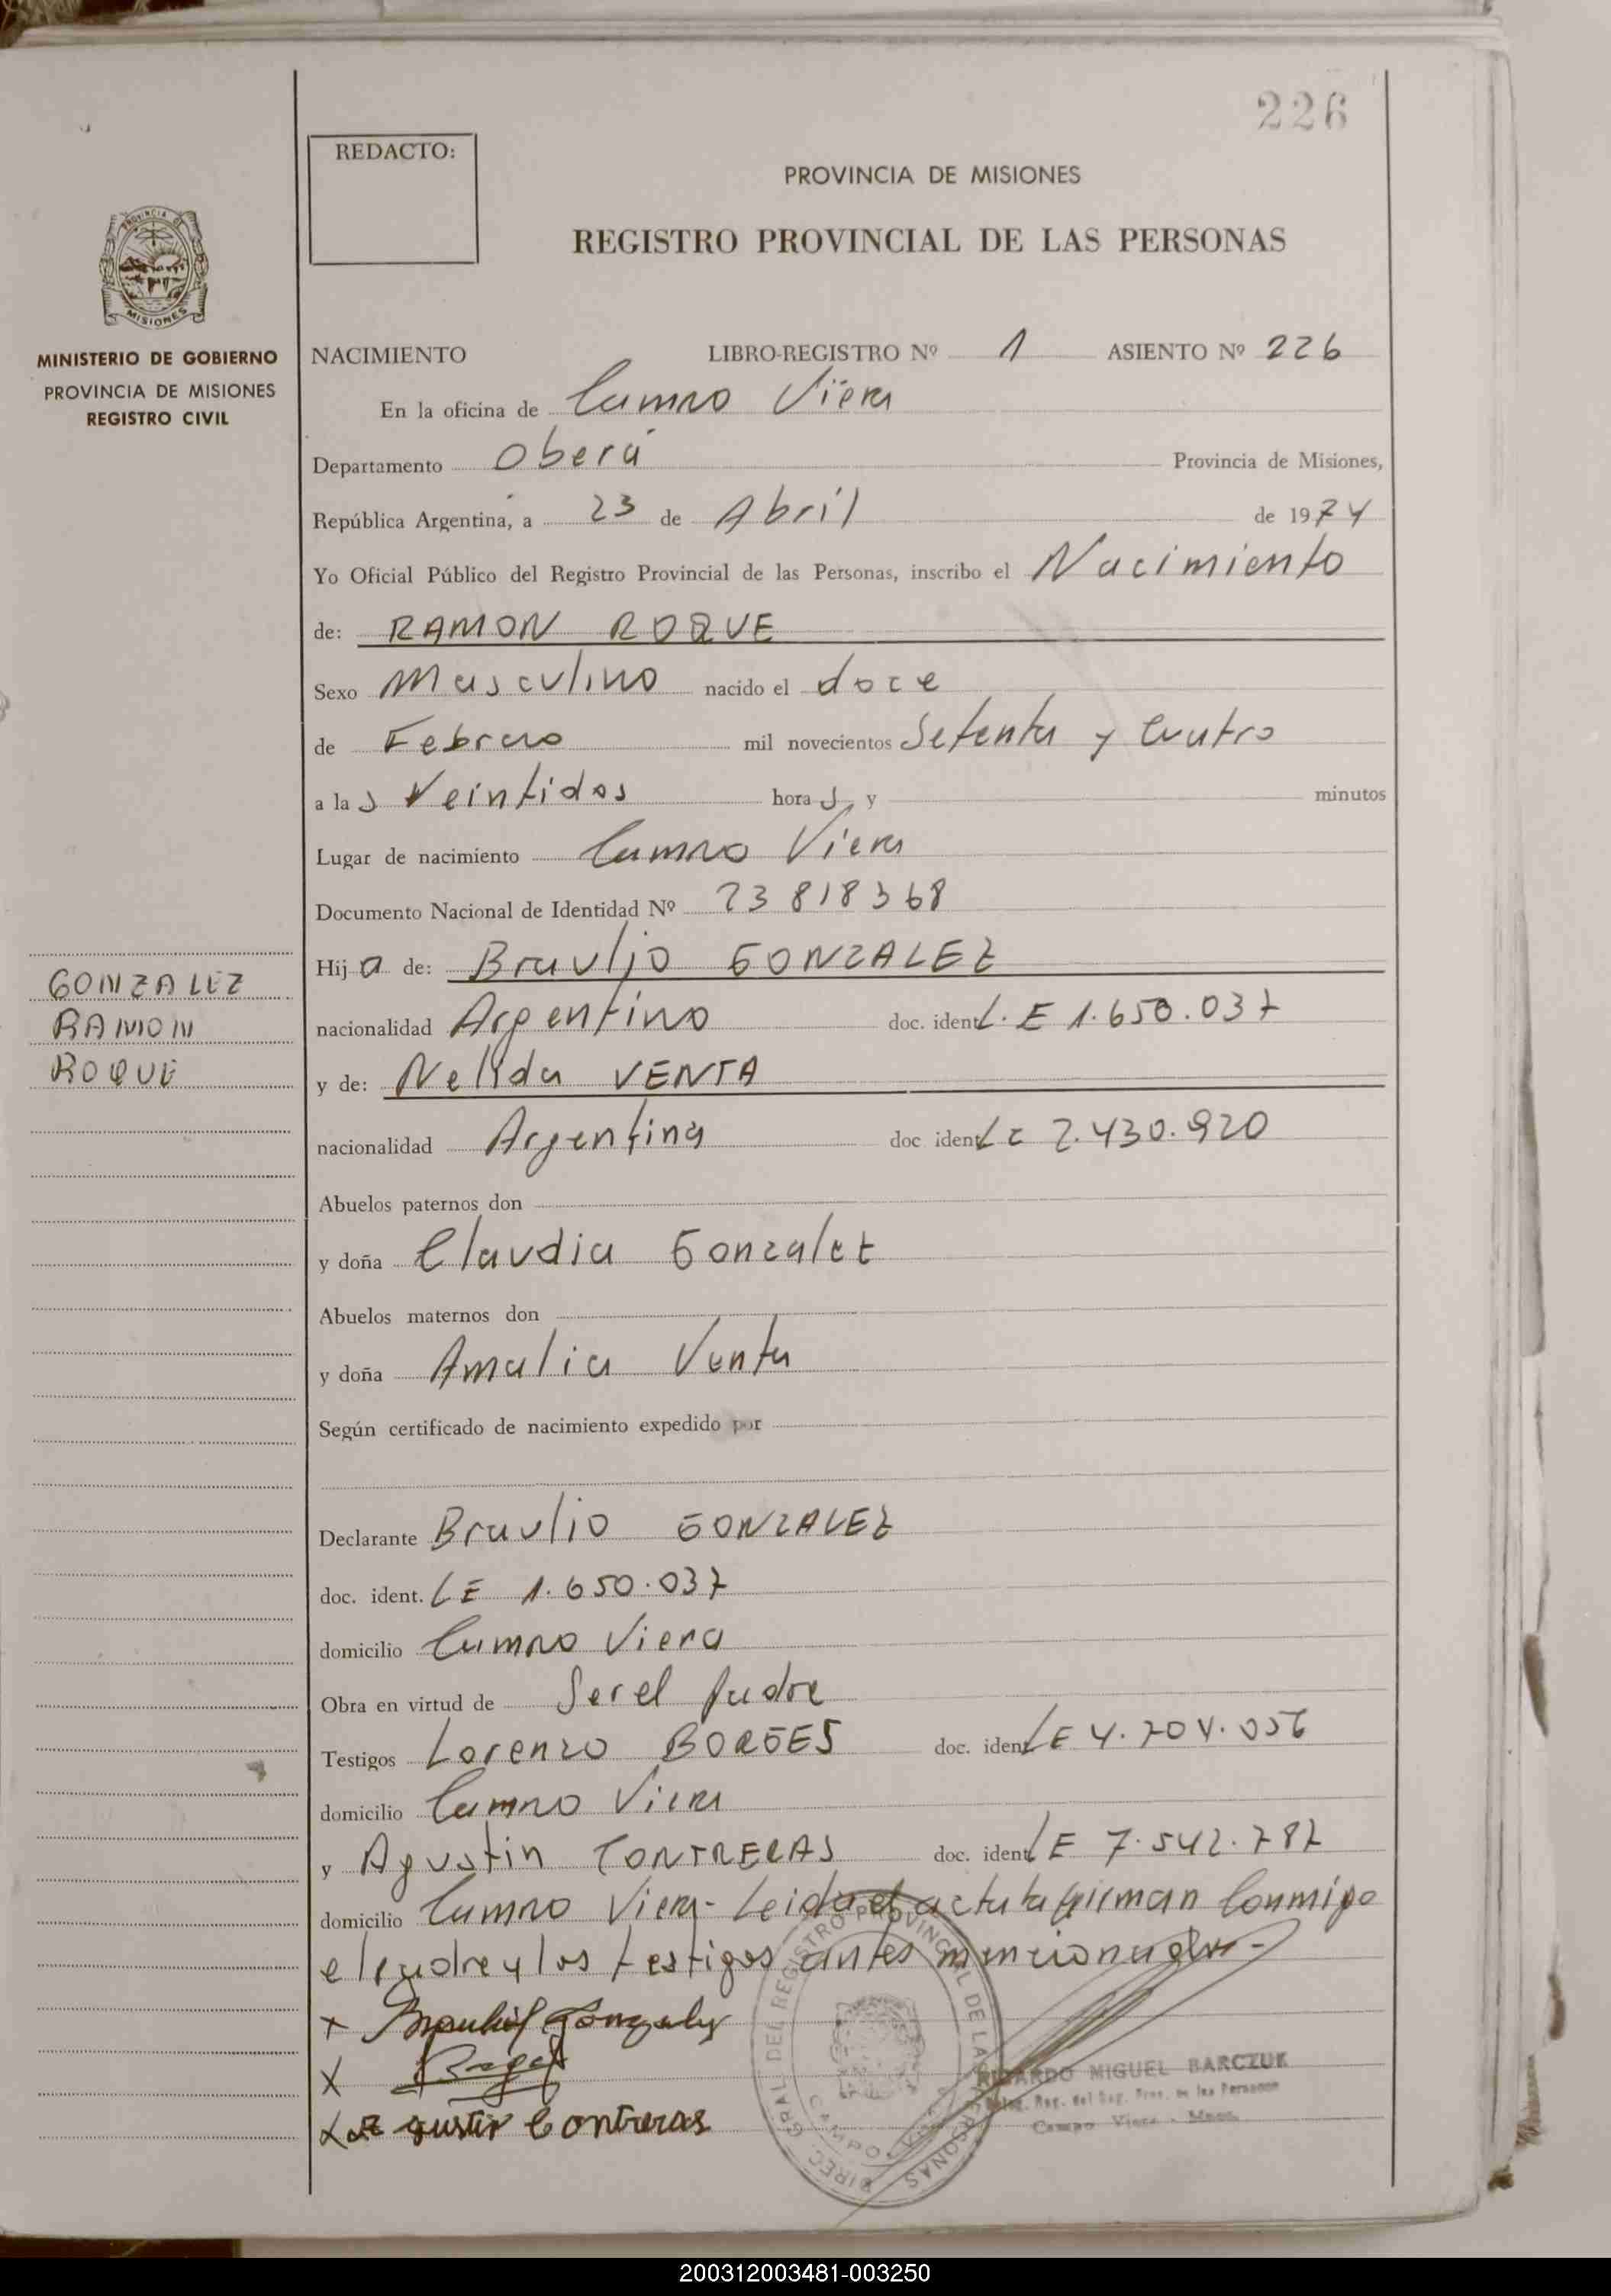 226
REDACTO:
PROVINCIA DE MISIONES
REGISTRO PROVINCIAL DE LAS PERSONAS
PROVINCIA DE
MISIONES
MINISTERIO DE GOBIERNO
PROVINCIA DE MISIONES
REGISTRO CIVIL
NACIMIENTO LIBRO-REGISTRO Nº 1 ASIENTO Nº 226
En la oficina de Campo Viera
Departamento Oberá Provincia de Misiones,
República Argentina, a 23 de Abril de 1974
Yo Oficial Público del Registro Provincial de las Personas, inscribo el Nacimiento
de: RAMON ROQUE
Sexo Masculino nacido el doce
de Febrero mil novecientos Setenta y Cuatro
a las Veintidos horas y minutos
Lugar de nacimiento Campo Viera
Documento Nacional de Identidad Nº 23818368
Hijo de: Braulio GONZALEZ
nacionalidad Argentino doc. ident L.E 1.650.037
y de: Nelida VENTA
nacionalidad Argentina doc ident L C 2.430.920
Abuelos paternos don
y doña Claudia Gonzalez
Abuelos maternos don
y doña Amalia Venta
Según certificado de nacimiento expedido por
Declarante Braulio GONZALEZ
doc. ident. LE 1.650.037
domicilio Campo Viera
Obra en virtud de Ser el padre
Testigos Lorenzo BORGES doc. ident LE 4.704.056
domicilio Campo Viera
y Agustin CONTRERAS doc. ident LE 7.542.787
domicilio Campo Viera- Leida el acta la firman Conmigo
el padre y los testigos antes mencionados-
GONZALEZ
RAMON
ROQUE
x Gonzalez
X
x Agustin Contreras
DIREC. GRAL DEL REGISTRO PROVINCIAL DE LAS PERSONAS
CAMPO
RICARDO MIGUEL BARCZUK
Campo Viera - Mnes.
200312003481-003250